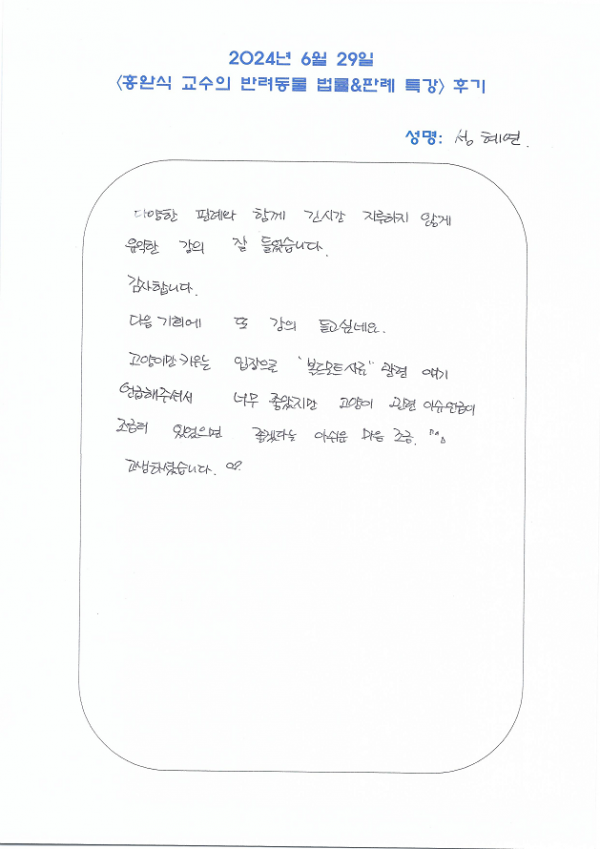 2024년 6월 29일
<홍완식 교수의 반려동물 법률&판례 특강> 후기
성명: 성혜연.
다양한 판례와 함께 긴시간 지루하지 않게
유익한 강의 잘 들었습니다.
감사합니다.
다음 기회에 또 강의 듣고싶네요.
고양이만 키우는 입장으로 "볼드모트사료" 관련 얘기
언급해주셔서 너무 좋았지만 고양이 관련 이슈언급이
조금더 있었으면 좋겠다는 아쉬운 마음 조금. ^^
고생하셨습니다.